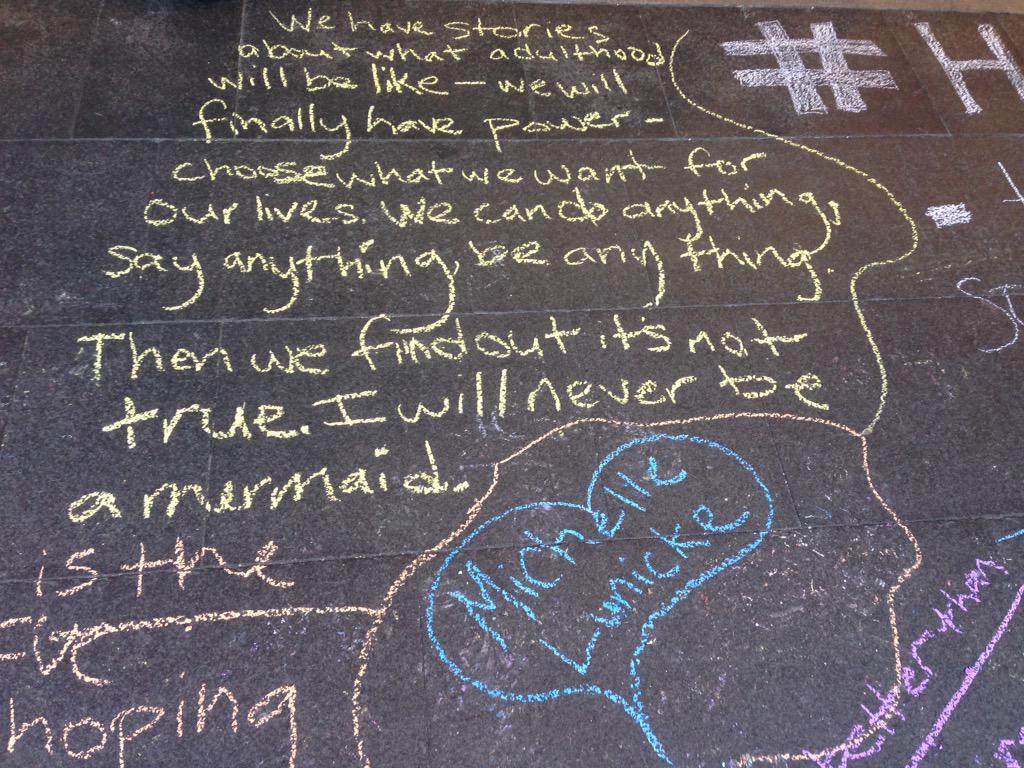 We have stories
about what adulthood
will be like - we will
finally have power -
choose what we want for
our lives. We can do anything,
say anything, be any thing.
Then we find out it's not
true. I will never be
a mermaid.
# H
is the
hoping
Michelle
Lunicke
than